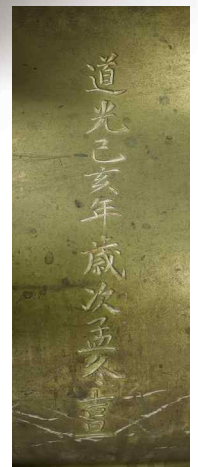 道光己亥年歲次孟冬吉旦